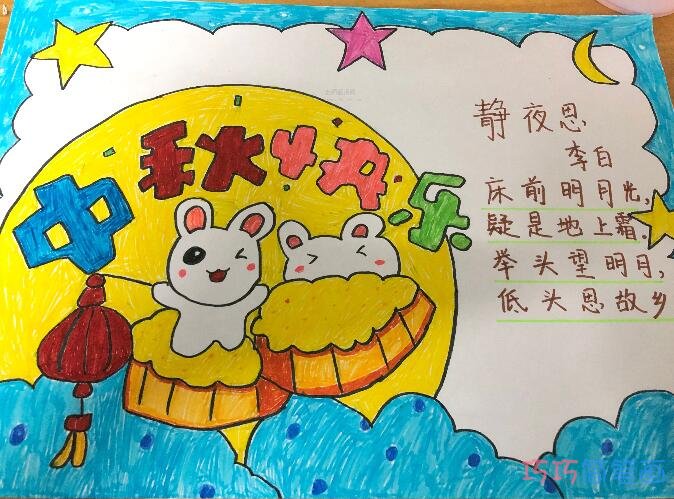 中秋快乐
静夜思
李白
床前明月光，
疑是地上霜。
举头望明月，
低头思故乡